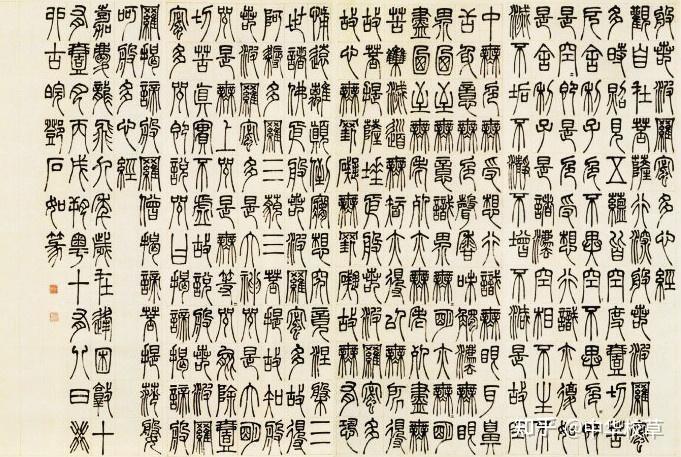 般若波羅蜜多心經
觀自在菩薩行深般若波羅蜜
多時照見五蘊皆空度壹切苦
厄舍利子色不異空空不異色色即
是空空即是色受想行識亦復如
是舍利子是諸法空相不生不
滅不垢不淨不增不減是故空
中無色無受想行識無眼耳鼻
舌身意無色聲香味觸法無眼
界乃至無意識界無無明亦無無明
盡乃至無老死亦無老死盡無
苦集滅道無智亦得以無所得
故菩提薩埵依般若波羅蜜多
故心無罣礙無罣礙故無有恐
怖遠離顛倒夢想究竟涅槃三
世諸佛依般若波羅蜜多故得
阿耨多羅三藐三菩提故知般
若波羅蜜多是大神咒是大明
咒是無上咒是無等等咒能除壹
切苦真實不虛故說般若波羅
蜜多咒即說咒曰揭諦揭諦般
羅揭諦般羅僧揭諦菩提薩婆
呵般若多心經
嘉慶龍飛九季歲在逢困敦十
有壹月丙戌朔粵十有八日癸
卯古皖鄧石如篆
知乎